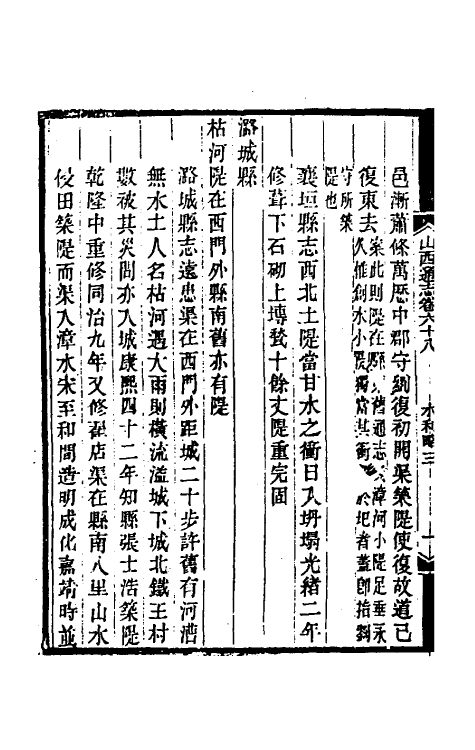 山西通志卷六十八　水利略三　一
邑漸蕭條萬歷中郡守劉復初開渠築隄使復故道已
復東去
案此則隄在縣 舊通志 漳河小隄足垂永
久雄創水小隄獨當其衝 於圯者蓋卽指劉
守所築
隄也
襄垣縣志西北土隄當甘水之衝日久坍塌光緒二年
修葺下石砌上塼甃十餘丈隄重完固
潞城縣
枯河隄在西門外縣南舊亦有隄
潞城縣志遠患渠在西門外距城二十步許舊有河漕
無水土人名枯河遇大雨則橫流溢城下城北鐵王村
數被其災間亦入城康熙四十二年知縣張士浩築隄
乾隆中重修同治九年又修翟店渠在縣南八里山水
侵田築隄而渠入漳水宋至和間造明成化嘉靖時並